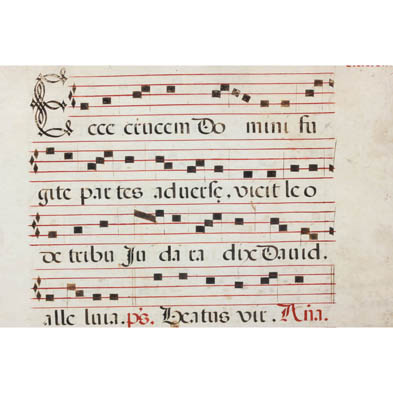 Ecce crucem Domini fu
gite partes adverse. vicit leo
de tribu Juda radix David.
alleluia. ps. Beatus vir. Aña.